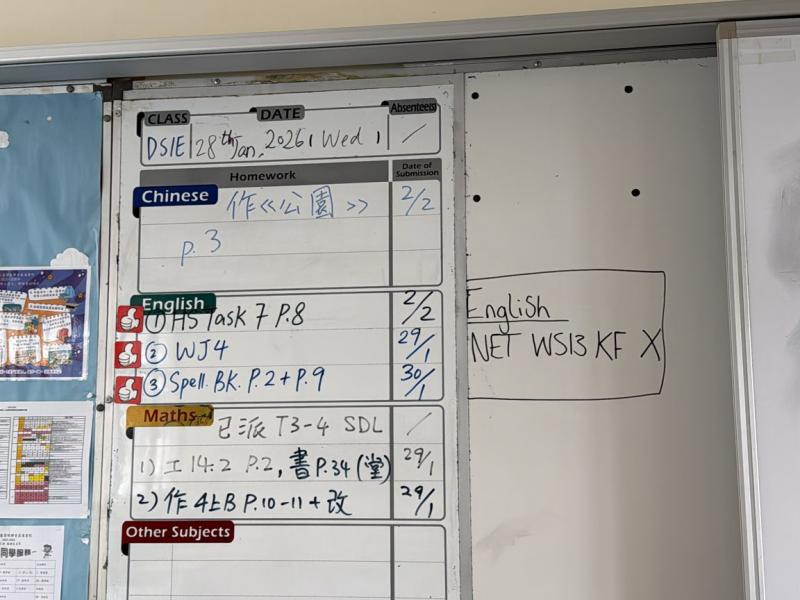 CLASS DATE Absentee(s)
DS1E 28th Jan. 2026 ( Wed ) /
Homework Date of Submission
Chinese 作<<公園>> 2/2
p. 3
English
① HS Task 7 P.8 2/2
② WJ4 29/1
③ Spell. BK. P.2 + P.9 30/1
Maths 已派 T3-4 SDL /
1) 工 14.2 P.2, 書 P.34 (堂) 29/1
2) 作 4上B P.10-11 + 改 29/1
Other Subjects
English
NET WS13 KF X